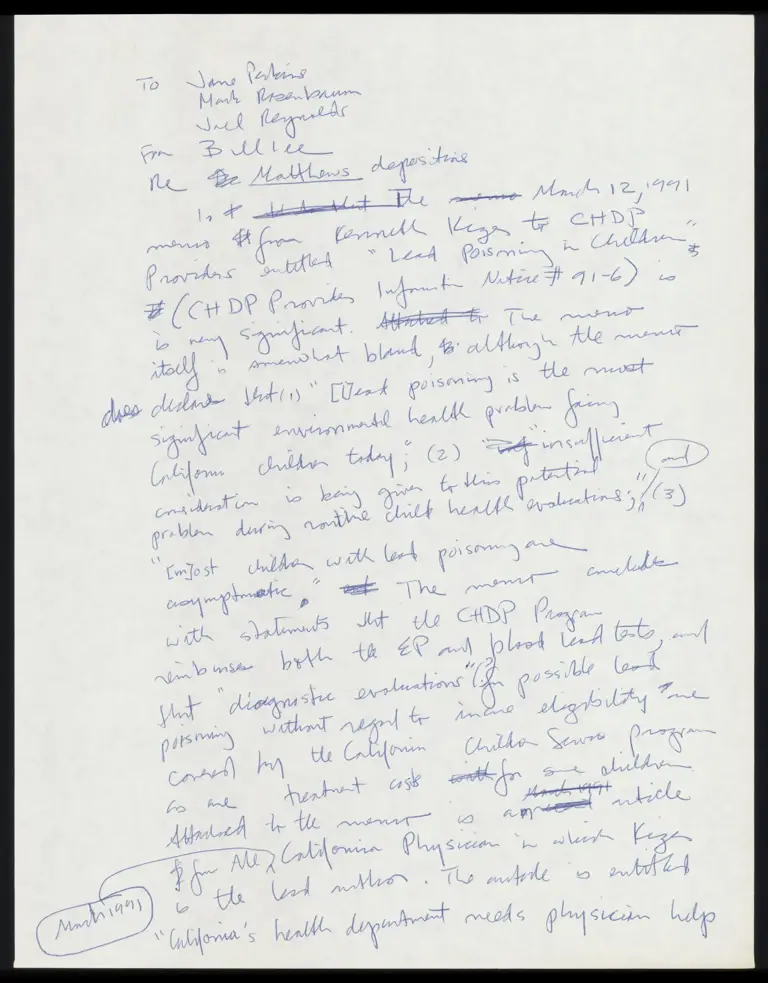 To Jane Perkins
Mark Rosenbaum
Joel Reynolds
From Bill Lee
Re Matthews deposition
1. The March 12, 1991
memo from Kenneth Kizer to CHDP
Providers entitled "Lead Poisoning in Children"
(CHDP Provider Information Notice # 91-6) is
is very significant. The memo
itself is somewhat bland, although the memo
does declare that (1) "[l]ead poisoning is the most
significant environmental health problem facing
California children today"; (2) "insufficient
consideration is being given to this potential
problem during routine child health evaluations;" and (3)
"[m]ost children with lead poisoning are
asymptomatic." The memo concludes
with statements that the CHDP Program
reimburses both the EP and blood lead tests, and
that "diagnostic evaluations (for possible lead
poisoning without regard to income eligibility" are
covered by the California Children Services program
as are treatment costs for some children
Attached to the memo is article
from the March 1991 California Physician in which Kizer
is the lead author. The article is entitled
"California's health department needs physician help